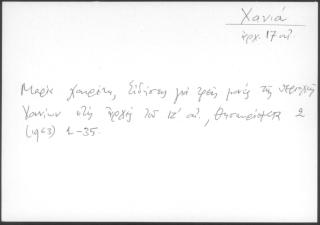 Χανιά
ἀρχ. 17 αἰ.
Μαρία Χαιρέτη, Εἰδήσεις γιά τρεῖς μονές τῆς περιοχῆς
Χανίων στίς ἀρχές τοῦ ΙΖ' αἰ., Θησαυρίσματα 2
(1963) 1-35.